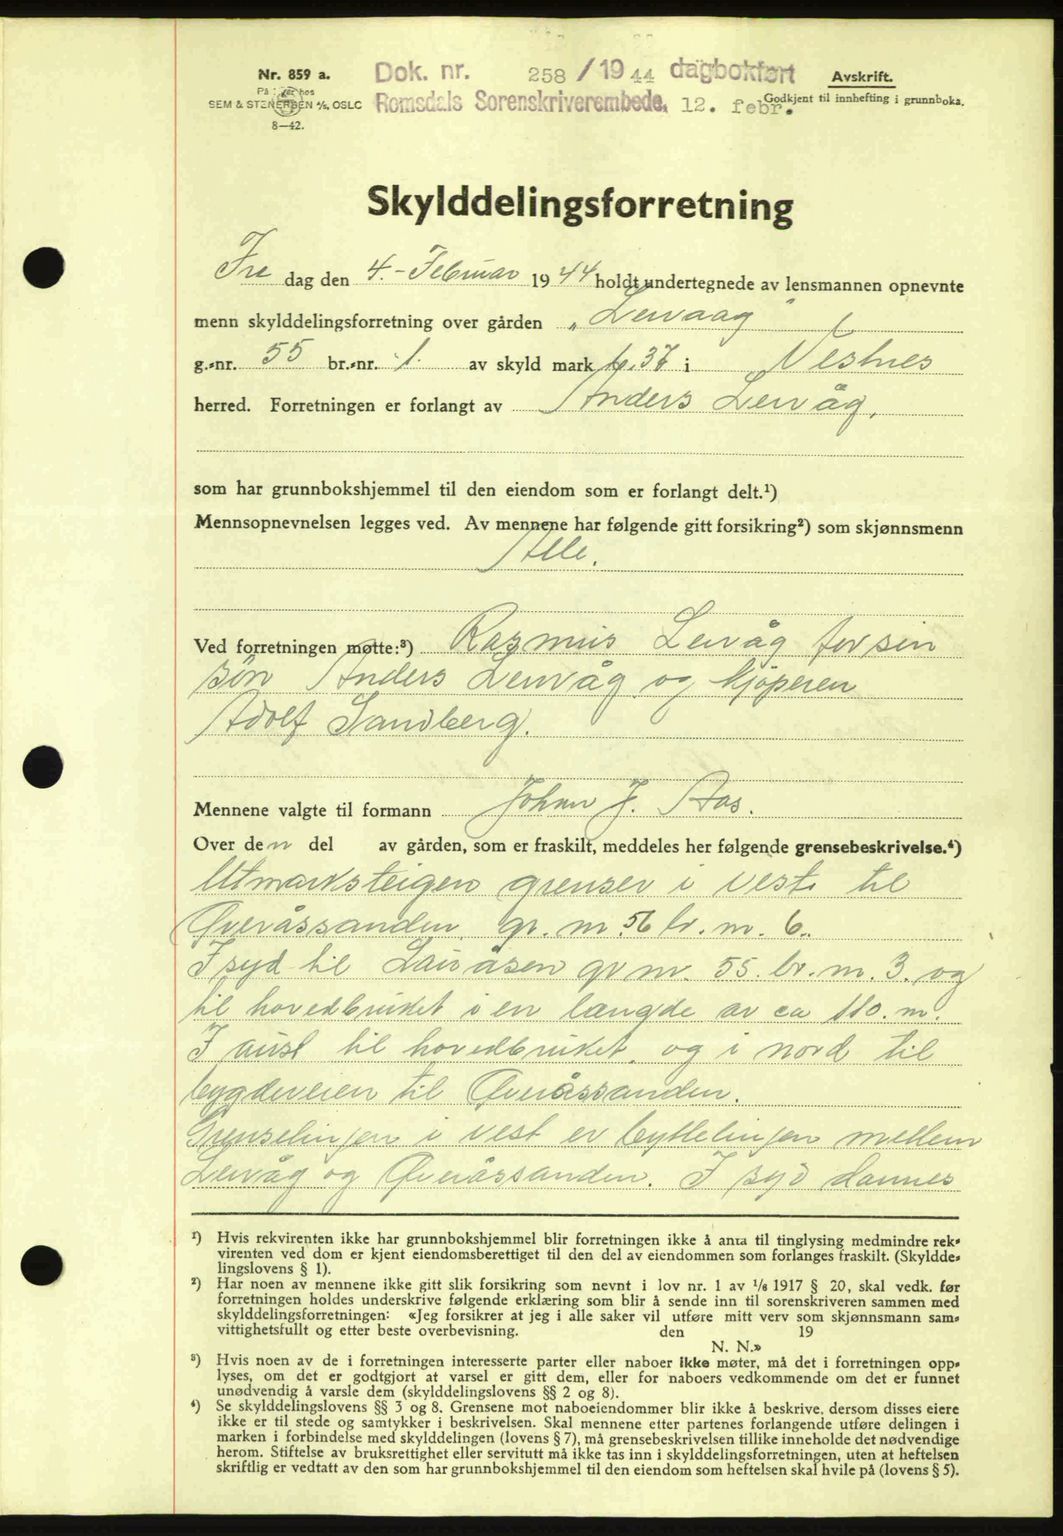 Nr. 859 a.
SEM & STENERSEN A/S, OSLO
8—42.
Dok. nr. 258 / 19 44 dagbokført
Romsdals Sorenskriverembede, 12. febr.
Avskrift.
Godkjent til innhefting i grunnboka.
Skylddelingsforretning
Fre dag den 4.- Februar 19 44 holdt undertegnede av lensmannen opnevnte
menn skylddelingsforretning over gården „Leirvaag"
g.-nr. 55 br.-nr. 1. av skyld mark 6.37 i Vestnes
herred. Forretningen er forlangt av Anders Leirvåg,
som har grunnbokshjemmel til den eiendom som er forlangt delt.¹)
Mennsopnevnelsen legges ved. Av mennene har følgende gitt forsikring²) som skjønnsmenn
Alle.
Ved forretningen møtte:³) Rasmus Leirvåg for sin
søn Anders Leirvåg og kjøperen
Adolf Sandberg.
Mennene valgte til formann Johan J. Aas.
Over den del av gården, som er fraskilt, meddeles her følgende grensebeskrivelse.⁴)
Utmarksteigen grenser i vest til
Øveråssanden gr. nr. 56 br. nr. 6.
I syd til gr nr. 55. br. nr. 3. og
til hovedbruket i en længde av ca 110. m.
I aust til hovedbruket og i nord til
bygdeveien til Øveråssanden.
Grenselinjen i vest er byttelinjen mellem
Leirvåg og Øveråssanden. I syd dannes
¹) Hvis rekvirenten ikke har grunnbokshjemmel blir forretningen ikke å anta til tinglysing medmindre rek-
virenten ved dom er kjent eiendomsberettiget til den del av eiendommen som forlanges fraskilt. (Skyldde-
lingslovens § 1).
²) Har noen av mennene ikke gitt slik forsikring som nevnt i lov nr. 1 av 1/6 1917 § 20, skal vedk. før
forretningen holdes underskrive følgende erklæring som blir å sende inn til sorenskriveren sammen med
skylddelingsforretningen: «Jeg forsikrer at jeg i alle saker vil utføre mitt verv som skjønnsmann sam-
vittighetsfullt og etter beste overbevisning. den 19
N. N.»
³) Hvis noen av de i forretningen interesserte parter eller naboer ikke møter, må det i forretningen opp-
lyses, om det er godtgjort at varsel er gitt dem, eller for naboers vedkommende om det er funnet
unødvendig å varsle dem (skylddelingslovens §§ 2 og 8).
⁴) Se skylddelingslovens §§ 3 og 8. Grensene mot naboeiendommer blir ikke å beskrive, dersom disses eiere
ikke er til stede og samtykker i beskrivelsen. Skal mennene etter partenes forlangende utføre delingen i
marken i forbindelse med skylddelingen (lovens § 7), må grensebeskrivelsen tillike inneholde det nødvendige
herom. Stiftelse av bruksrettighet eller servitutt må ikke tas inn i skylddelingsforretningen, uten at heftelsen
skriftlig er vedtatt av den som har grunnbokshjemmel til den eiendom som heftelsen skal hvile på (lovens § 5).